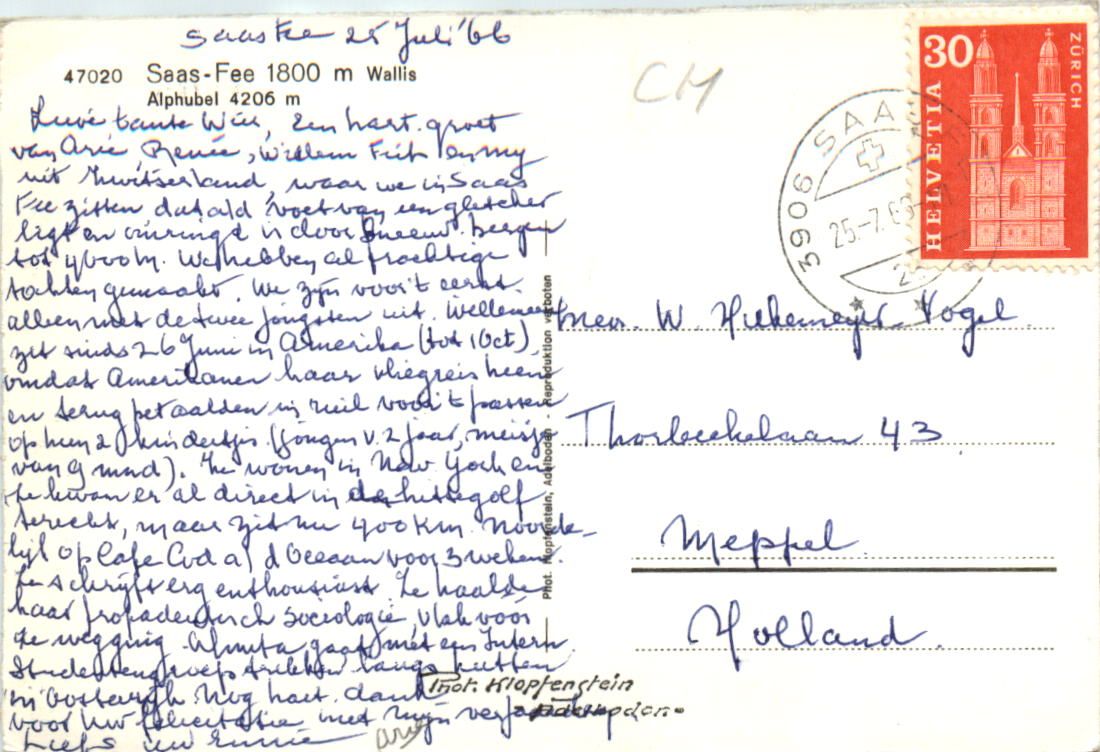 Saas Fee 25 Juli '66
47020 Saas-Fee 1800 m Wallis
Alphubel 4206 m
CH
30
HELVETIA
ZÜRICH
3906 SAA
25.-7.66-
Lieve tante Wies, Een hart. groet
van Arie, Renée, Willem Frits en my
uit Zwitserland, waar we in Saas
Fee zitten, dat a/d voet van een gletscher
ligt en omringd is door sneeuw bergen
tot 4000 m. We hebben al prachtige
tochten gemaakt. We zijn voor 't eerst
alleen met de twee jongsten uit. Willemien
zit sinds 26 Juni in Amerika (tot 1 Oct)
omdat Amerikanen haar vliegreis heen
en terug betaalden in ruil voor 't passen
op hun 2 kindertjes (jongen v. 2 jaar, meisje
van 9 mnd). Ze wonen in New York en
ze kwam er al direct in de hittegolf
terecht, maar zit nu 400 km. noorde-
lijk op Cape Cod a/d Oceaan voor 3 weken.
Ze schrijft erg enthousiast. Ze haalde
haar propadeutisch Sociologie vlak vóór
ze wegging. gaat met een Intern.
Studentengroep trekken langs hutten
in Oostenrijk. Nog hart. dank
voor Uw felicitatie met mijn verjaardag
Liefs uw
Mevr. W. Hekemeyer-Vogel
Thorbeckelaan 43
Meppel
Holland
Phot. Klopfenstein, Adelboden - Reproduktion verboten
Phot. Klopfenstein
Adelboden